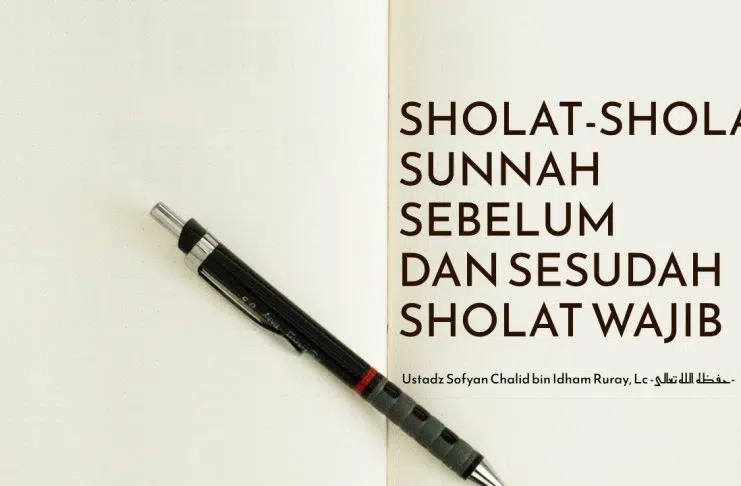 SHOLAT-SHOLA
SUNNAH
SEBELUM
DAN SESUDAH
SHOLAT WAJIB
Ustadz Sofyan Chalid bin Idham Ruray, Lc -حفظه الله تعالى-